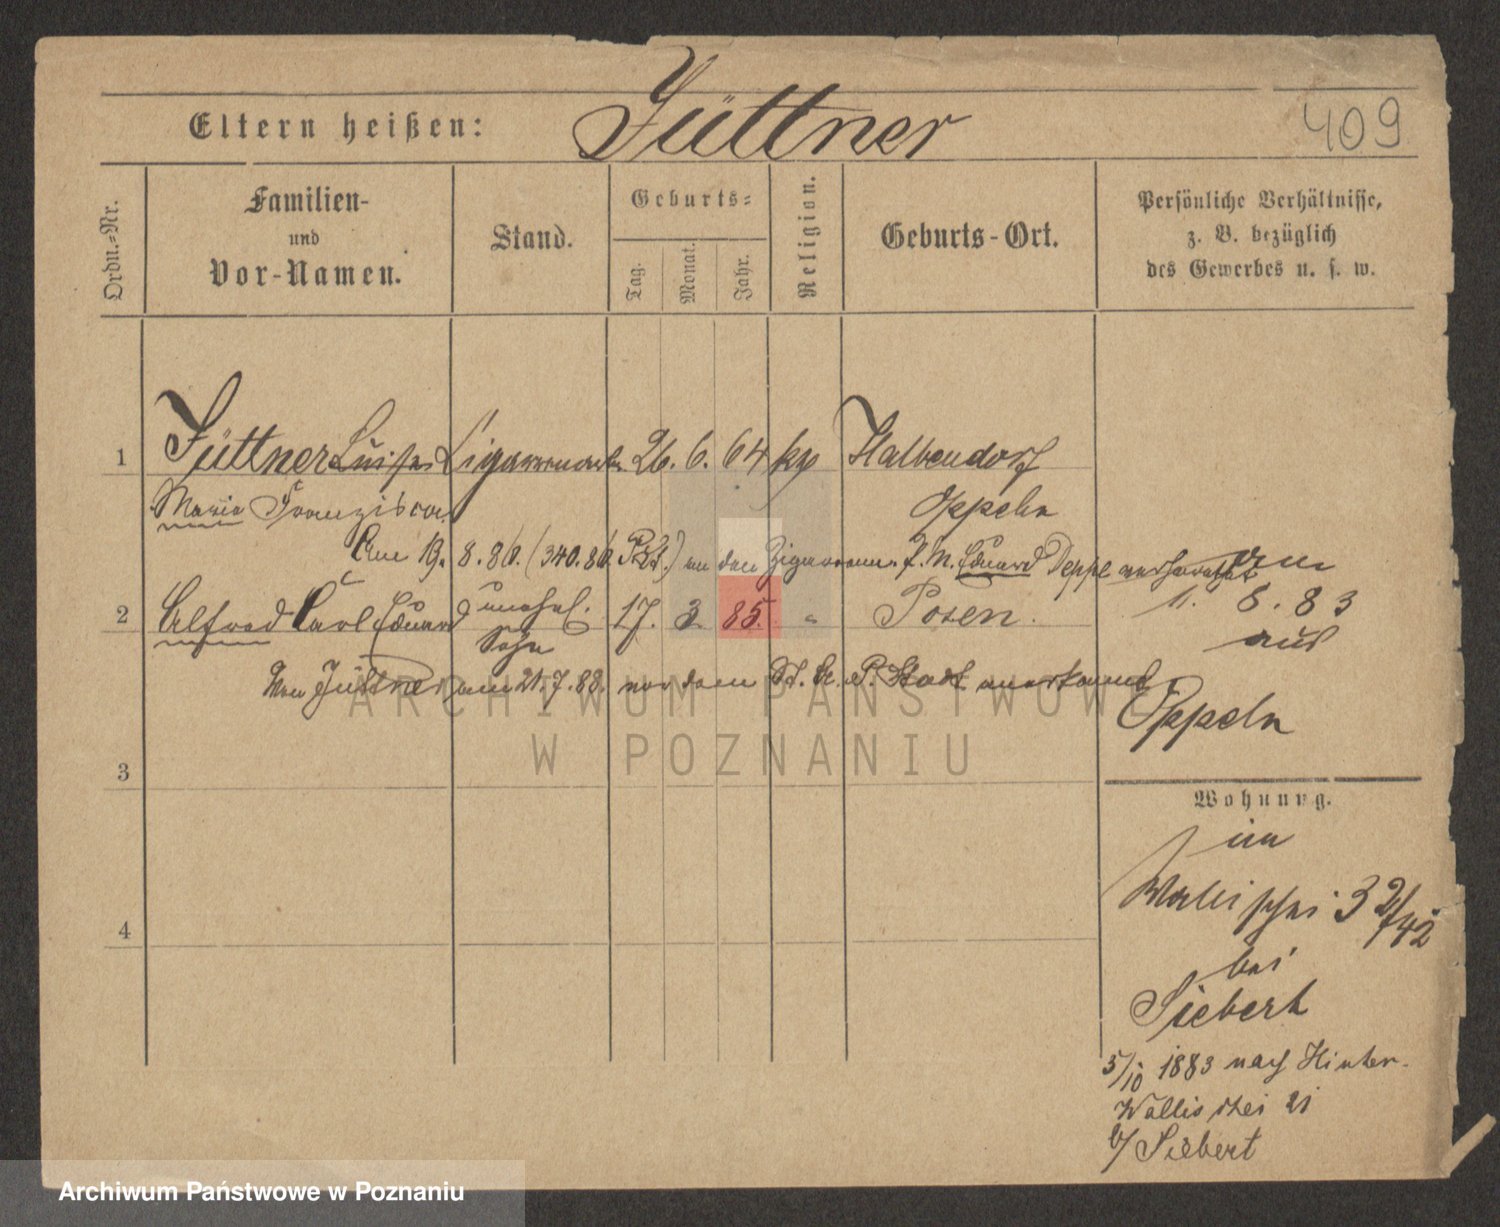 Eltern heißen: Jüttner 409
Ordn.-Nr.
Familien-
und
Vor-Namen.
Stand.
Geburts-
Tag.
Monat.
Jahr.
Religion.
Geburts-Ort.
Persönliche Verhältnisse,
z. B. bezüglich
des Gewerbes u. s. w.
1 Jüttner Luise Cigarrenarb. 26. 6. 64 kp Halbendorf
Maria Franzisca Oppeln
Am 19. 8. 86. (340.86. ) an den Zigarrenm. J. M. Eduard Deppe verheirathet
am
1. 8. 83
aus
Oppeln
2 Alfred Carl Eduard unehel. Sohn 17. 3. 85. " Posen.
Jüttner am 21. 7. 88. vor dem St. A. P. Stadt anerkannt
3
4
Wohnung.
im
Wallischei 32/42
bei
Siebert
5/10 1883 nach Hinter-
Wallischei 21
b/ Siebert
ARCHIWUM PAŃSTWOWE
W POZNANIU
Archiwum Państwowe w Poznaniu